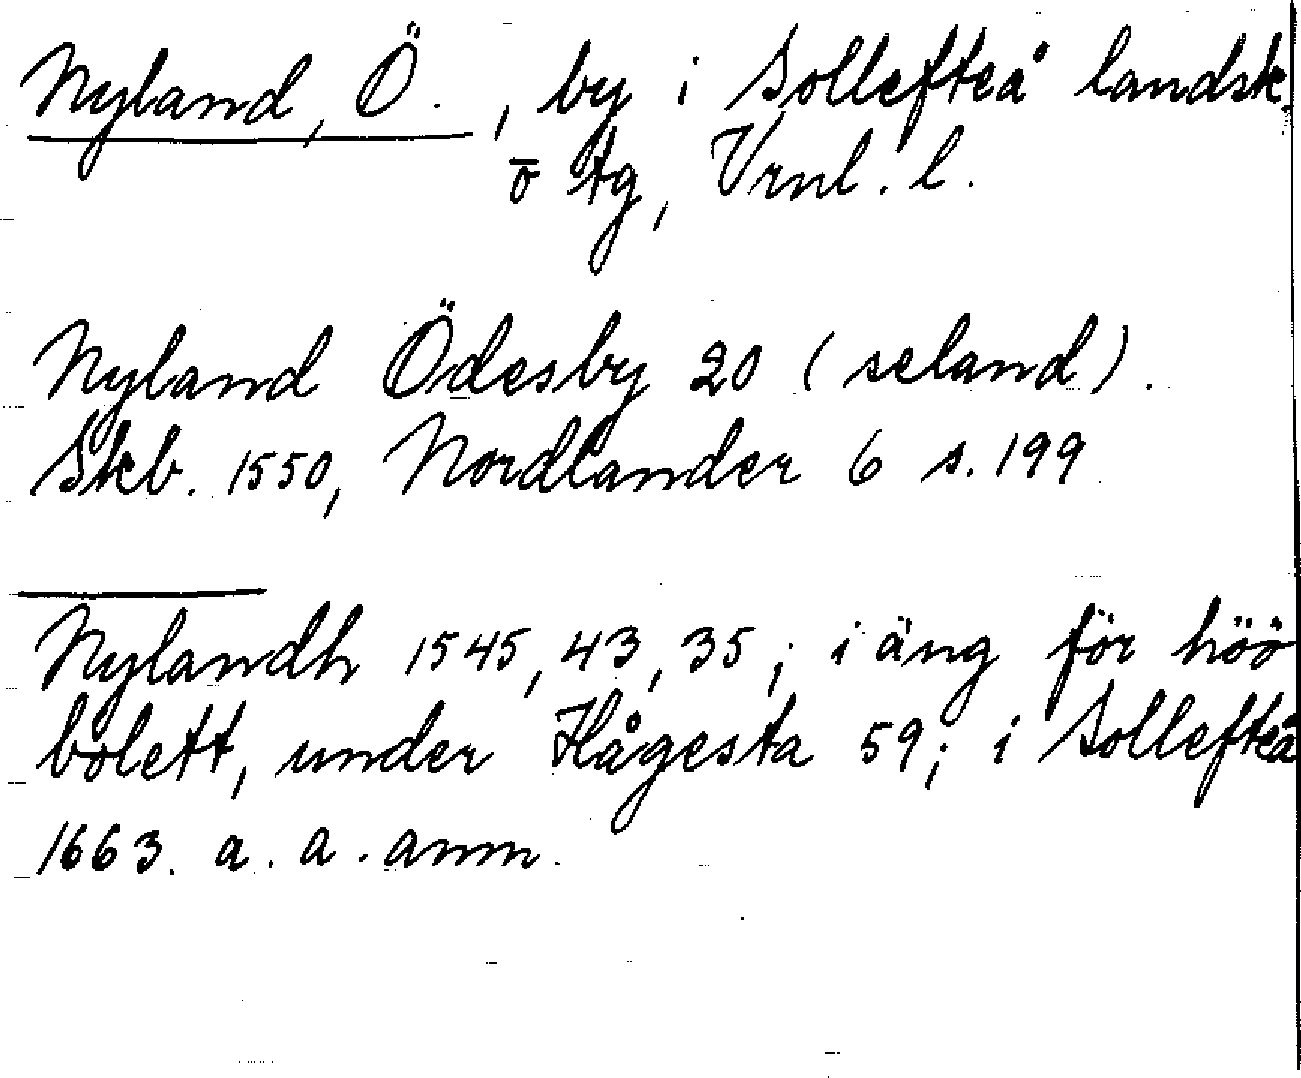 Nyland, Ö. , by i Sollefteå landsk.
o tg, Vrnl. l.
Nyland Ödesby 20 (seland).
Skb. 1550, Nordlander 6 s. 199
Nylandh 1545, 43, 35; i äng för höö
bolett, under Hågesta 59; i Sollefteå
1663. a. a. anm.